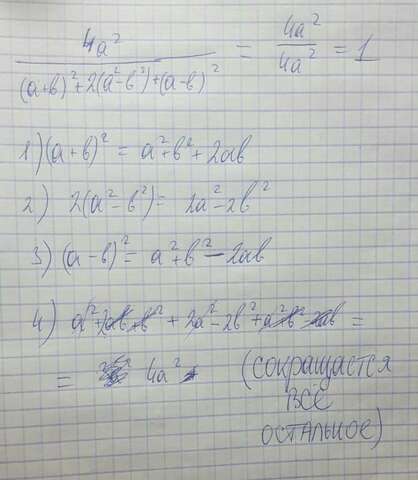 4a² / ((a+b)²+2(a²-b²)+(a-b)²) = 4a²/4a² = 1
1) (a+b)² = a²+b²+2ab
2) 2(a²-b²)= 2a²-2b²
3) (a-b)²= a²+b²-2ab
4) a²+2ab+b²+2a²-2b²+a²+b²-2ab =
= 4a² (сокращается
всё
остальное)